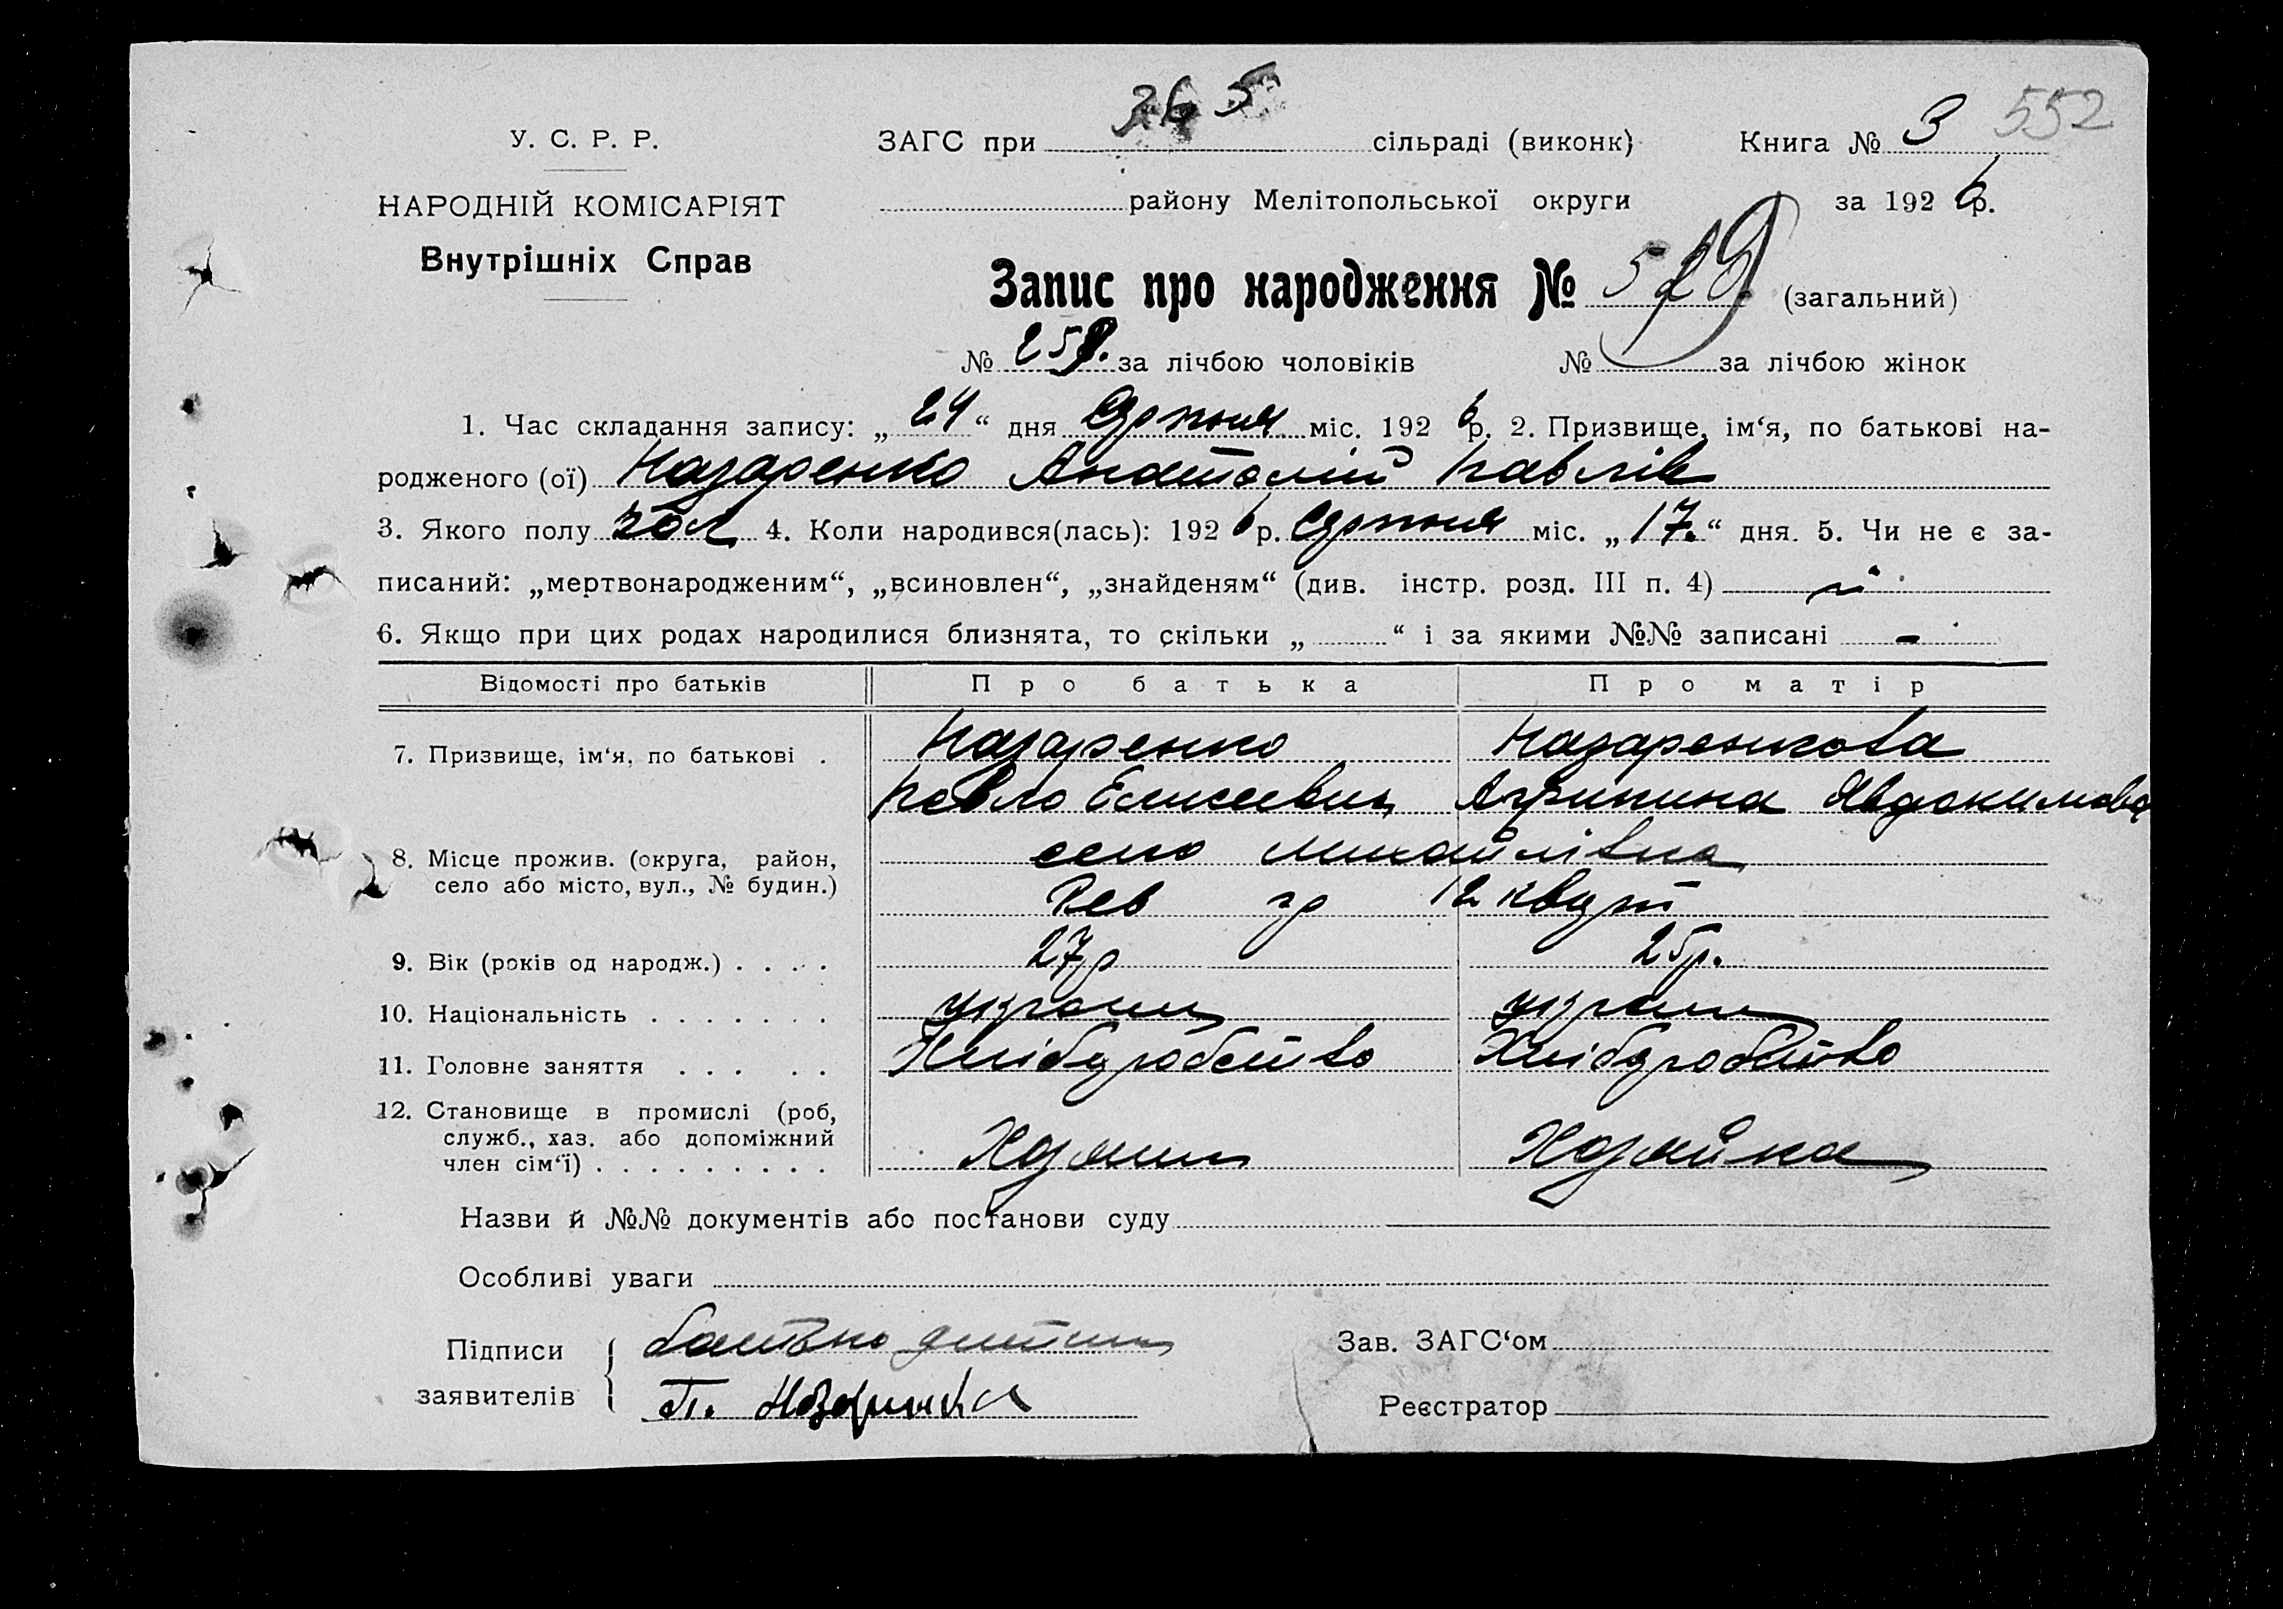 365 552
У. С. Р. Р. ЗАГС при сільраді (виконк) Книга № 3
НАРОДНІЙ КОМІСАРІЯТ району Мелітопольської округи за 1926 р.
Внутрішніх Справ
Запис про народження № 529 (загальний)
№ 258. за лічбою чоловіків № за лічбою жінок
1. Час складання запису: „ 24 “ дня Серпня міс. 1926 р. 2. Призвище, ім‘я, по батькові на-
родженого (ої) Назаренко Анатолій Павлів
3. Якого полу чол 4. Коли народився(лась): 1926 р. Серпня міс. „ 17. “ дня. 5. Чи не є за-
писаний: „мертвонародженим“, „всиновлен“, „знайденям“ (див. інстр. розд. III п. 4) ні
6. Якщо при цих родах народилися близнята, то скільки „ “ і за якими №№ записані -
Відомості про батьків Про батька Про матір
7. Призвище, ім‘я, по батькові . Назаренко Назаренкова
Павло Елисеевич Агрипина Явдокимова
8. Місце прожив. (округа, район, село або місто, вул., № будин.) село Михайлівка
Рев гр 12 кварт
9. Вік (років од народж.) . . . . 27р 25р.
10. Національність . . . . . . . україн україн
11. Головне заняття . . . . . Хлібуробство Хлібуробство
12. Становище в промислі (роб, служб., хаз. або допоміжний член сім‘ї) . . . . . . . . . Хозяин Хозяйка
Назви й №№ документів або постанови суду
Особливі уваги
Підписи заявителів батько дитини Зав. ЗАГС‘ом
П. Назаринко Реєстратор